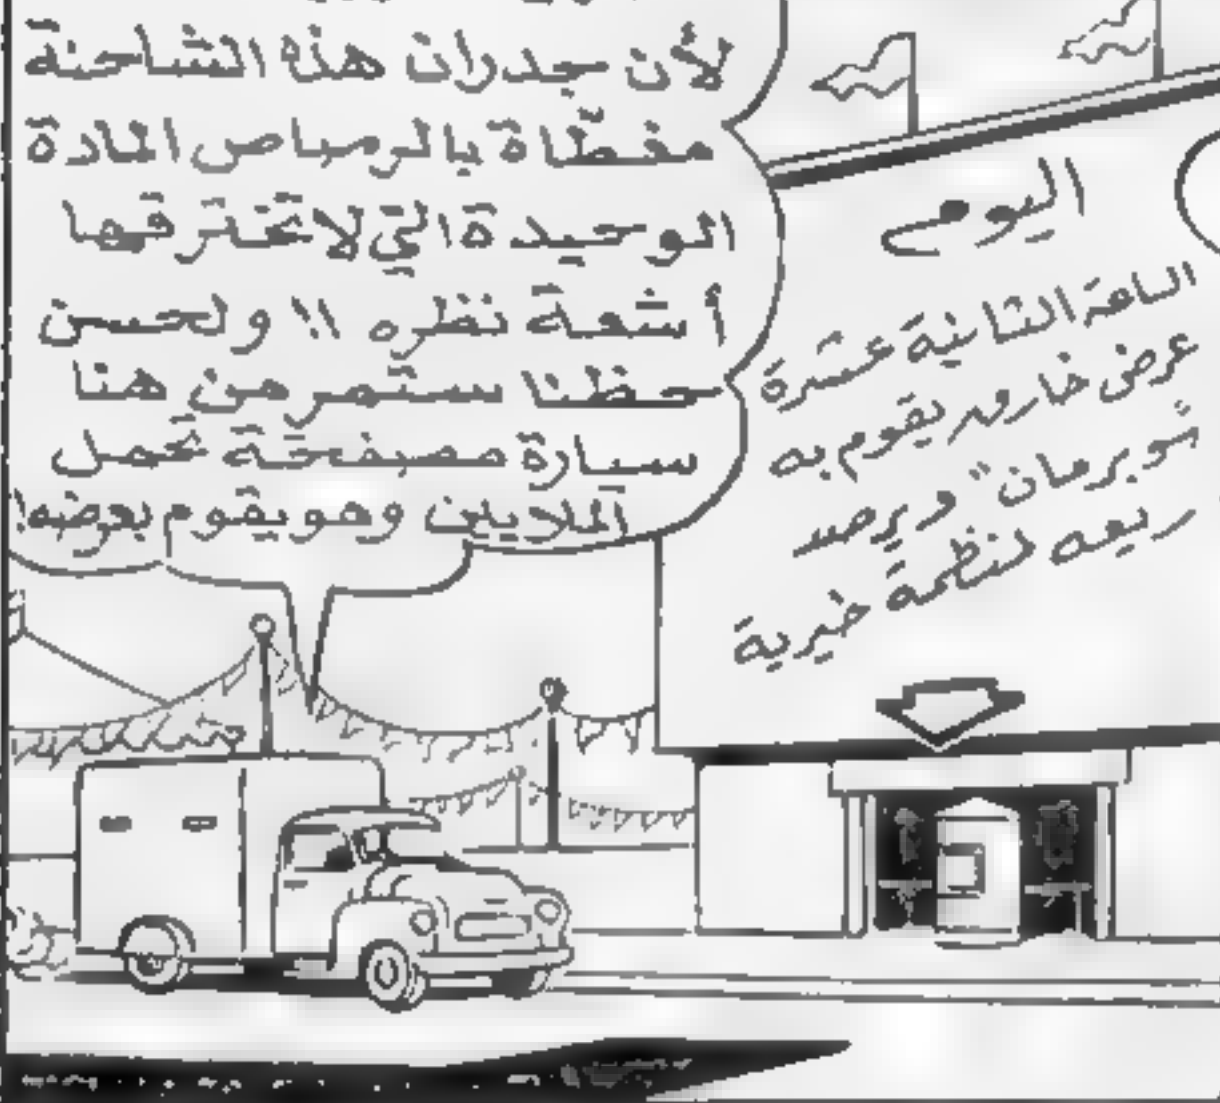 لأن جدران هذه الشاحنة
مغطّاة بالرصاص المادة
الوحيدة التي لا تخترقها
أشعة نظره !! ولحسن
حظنا ستمر من هنا
سيارة مصفحة تحمل
الملايين وهو يقوم بعرضه!
اليوم
الساعة الثانية عشرة
عرض خارق يقوم به
سوبرمان" ويرصد
ريعه لمنظمة خيرية